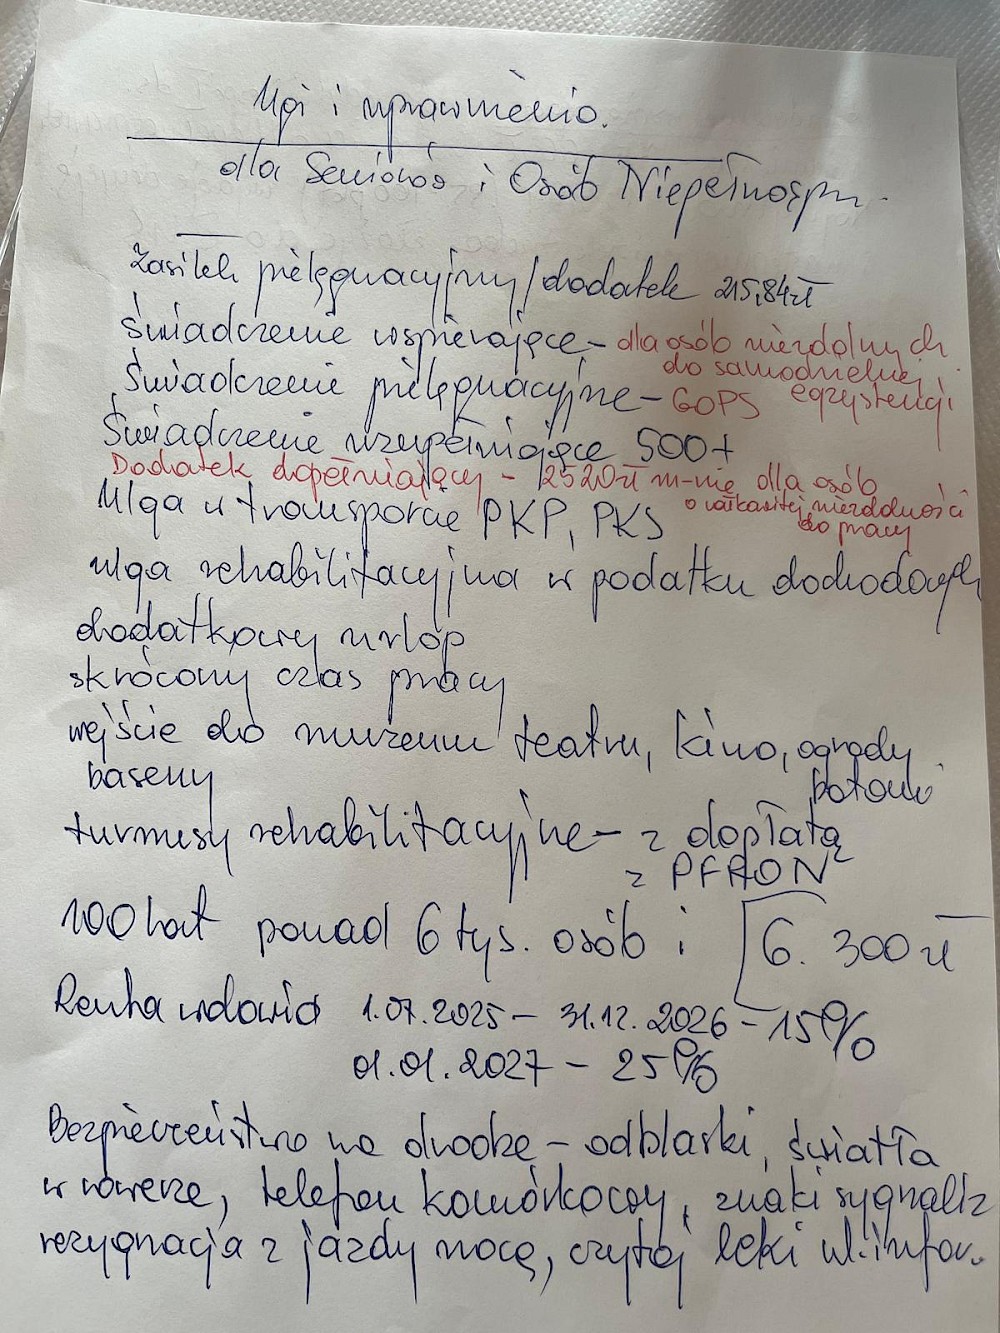 Ulgi i uprawnienia.
dla Seniorów i Osób Niepełnospr.
Zasiłek pielęgnacyjny/dodatek 215,84 zł
Świadczenie wspierające - dla osób niezdolnych
do samodzielnej
egzystencji
Świadczenie pielęgnacyjne - GOPS
Świadczenie uzupełniające 500+
Dodatek dopełniający - 2520 zł m-nie dla osób
o całkowitej niezdolności
do pracy
Ulga w transporcie PKP, PKS
ulga rehabilitacyjna w podatku dochodowym
dodatkowy urlop
skrócony czas pracy
wejście do muzeum teatru, kino, ogrody
botani
baseny
turnusy rehabilitacyjne - z dopłatą
z PFRON
100 lat ponad 6 tys. osób i 6.300 zł
Renta wdowia 1.07.2025 - 31.12.2026 - 15%
01.01.2027 - 25%
Bezpieczeństwo na drodze - odblaski, światła
w rowerze, telefon komórkowy, znaki sygnaliz
rezygnacja z jazdy nocą, czytaj leki ul. infor.